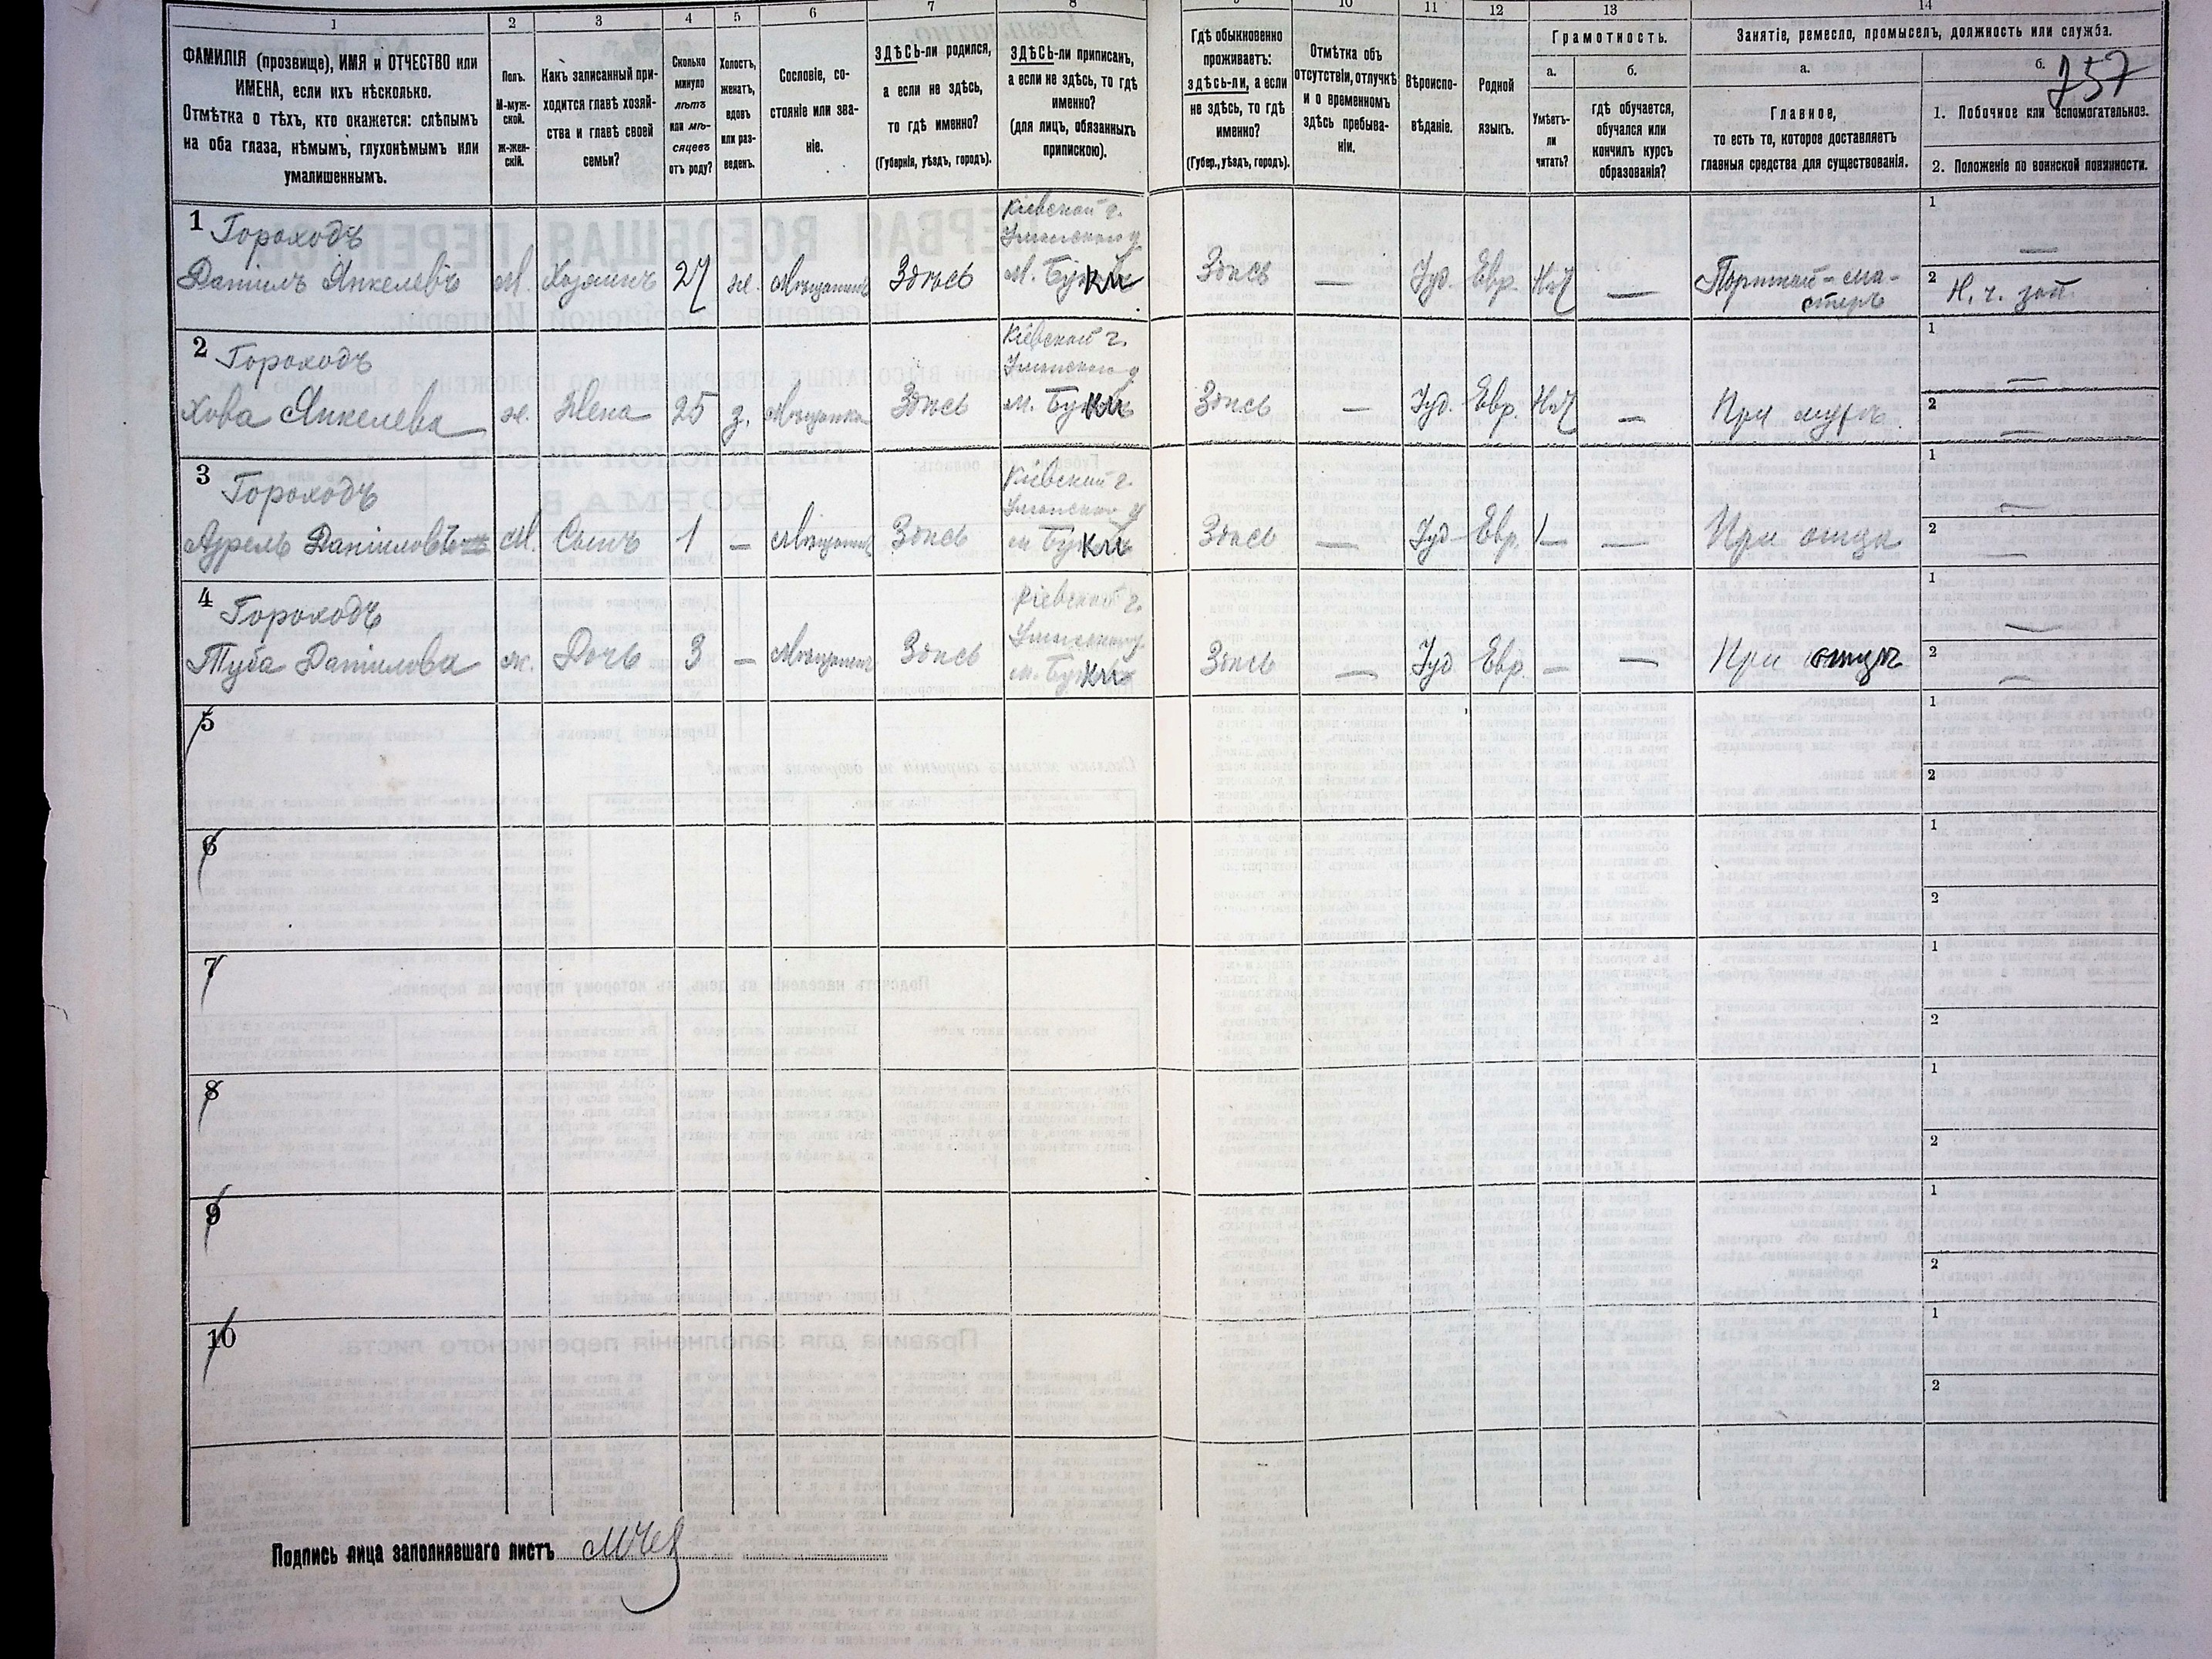 1
2
3
4
5
6
7
8
9
10
11
12
13
14
ФАМИЛІЯ (прозвище), ИМЯ и ОТЧЕСТВО или
ИМЕНА, если ихъ нѣсколько.
Отмѣтка о тѣхъ, кто окажется: слѣпымъ
на оба глаза, нѣмымъ, глухонѣмымъ или
умалишеннымъ.
Полъ.
М-муж-
ской.
Ж-жен-
скій.
Какъ записанный при-
ходится главѣ хозяй-
ства и главѣ своей
семьи?
Сколько
минуло
лѣтъ
или мѣ-
сяцевъ
отъ роду?
Холостъ,
женатъ,
вдовъ
или раз-
веденъ.
Сословіе, со-
стояніе или зва-
ніе.
ЗДѢСЬ-ли родился,
а если не здѣсь,
то гдѣ именно?
(Губернія, уѣздъ, городъ).
ЗДѢСЬ-ли приписанъ,
а если не здѣсь, то гдѣ
именно?
(для лицъ, обязанныхъ
припискою).
Гдѣ обыкновенно
проживаетъ:
здѣсь-ли, а если
не здѣсь, то гдѣ
именно?
(Губер., уѣздъ, городъ).
Отмѣтка объ
отсутствіи, отлучкѣ
и о временномъ
здѣсь пребыва-
ніи.
Вѣроиспо-
вѣданіе.
Родной
языкъ.
Грамотность.
а.
б.
Умѣетъ-
ли
читать?
гдѣ обучается,
обучался или
кончилъ курсъ
образованія?
Занятіе, ремесло, промыселъ, должность или служба.
а.
б.
757
Главное,
то есть то, которое доставляетъ
главныя средства для существованія.
1. Побочное или вспомогательное.
2. Положеніе по воинской повинности.
1
Гороходъ
Данiилъ Янкелевъ
М.
Хозяинъ
27
ж.
Мѣщанинъ
Здѣсь
Кіевской г.
Уманскаго у
м. Буки
Здѣсь
—
Іуд.
Евр.
Нѣт
—
Портной-ма-
стеръ
1
—
2
Н. ч. зап.
2
Гороходъ
Хова Янкелева
ж.
Жена
25
з.
Мѣщанка
Здѣсь
Кіевской г.
Уманскаго у
м. Буки
Здѣсь
—
Іуд.
Евр.
Нѣт
—
При мужѣ
1
—
2
—
3
Гороходъ
М.
Сынъ
1
—
Здѣсь
Кіевской г.
Уманскаго у
м Буки
Здѣсь
—
Іуд
Евр.
—
—
При отцѣ
1
—
2
—
4
Гороходъ
Туба Данiилова
ж.
Дочь
3
—
Здѣсь
Кіевской г.
Уманскаго у.
м. Буки
Здѣсь
—
Іуд.
Евр.
—
—
При отцѣ
1
—
2
—
5
1
2
6
1
2
7
1
2
8
1
2
9
1
2
10
1
2
Подпись лица заполнявшаго листъ